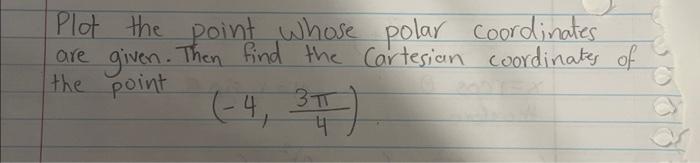 Plot the point whose polar coordinates
are given. Then find the Cartesian coordinates of
the point
(-4, 3π/4)